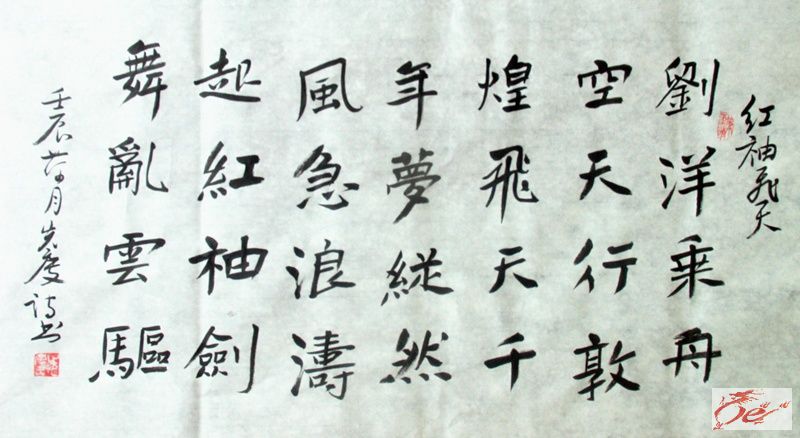 红袖飛天
劉洋乗舟
空天行敦
煌飛天千
年夢縱然
風急浪濤
起紅袖劍
舞亂雲驅
壬辰 月 慶诗书